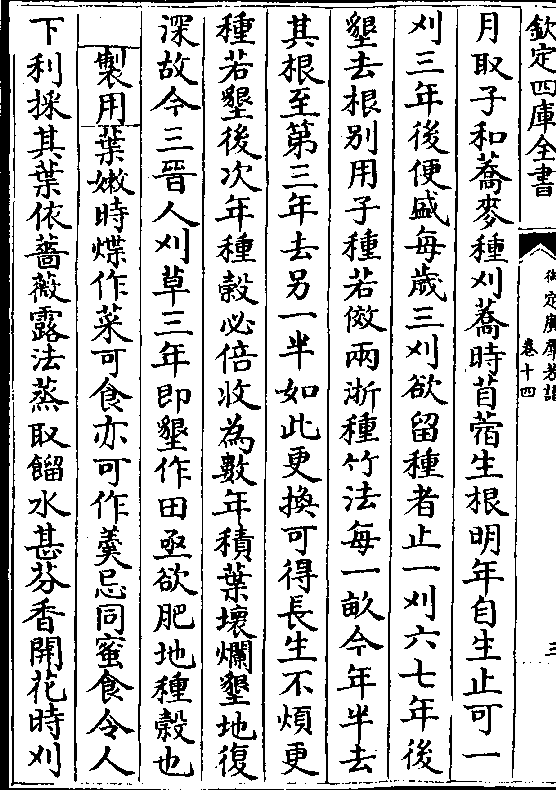 欽定四庫全書
御定廣羣芳譜
卷十四
三
月取子和蕎麥種刈蕎時苜蓿生根明年自生止可一
刈三年後便盛每歲三刈欲留種者止一刈六七年後
墾去根別用子種若倣兩浙種竹法每一畝今年半去
其根至第三年去另一半如此更換可得長生不煩更
種若墾後次年種穀必倍收為數年積葉壞爛墾地復
深故今三晉人刈草三年即墾作田亟欲肥地種穀也
製用葉嫩時煠作菜可食亦可作羹忌同蜜食令人
下利採其葉依薔薇露法蒸取餾水甚芬香開花時刈